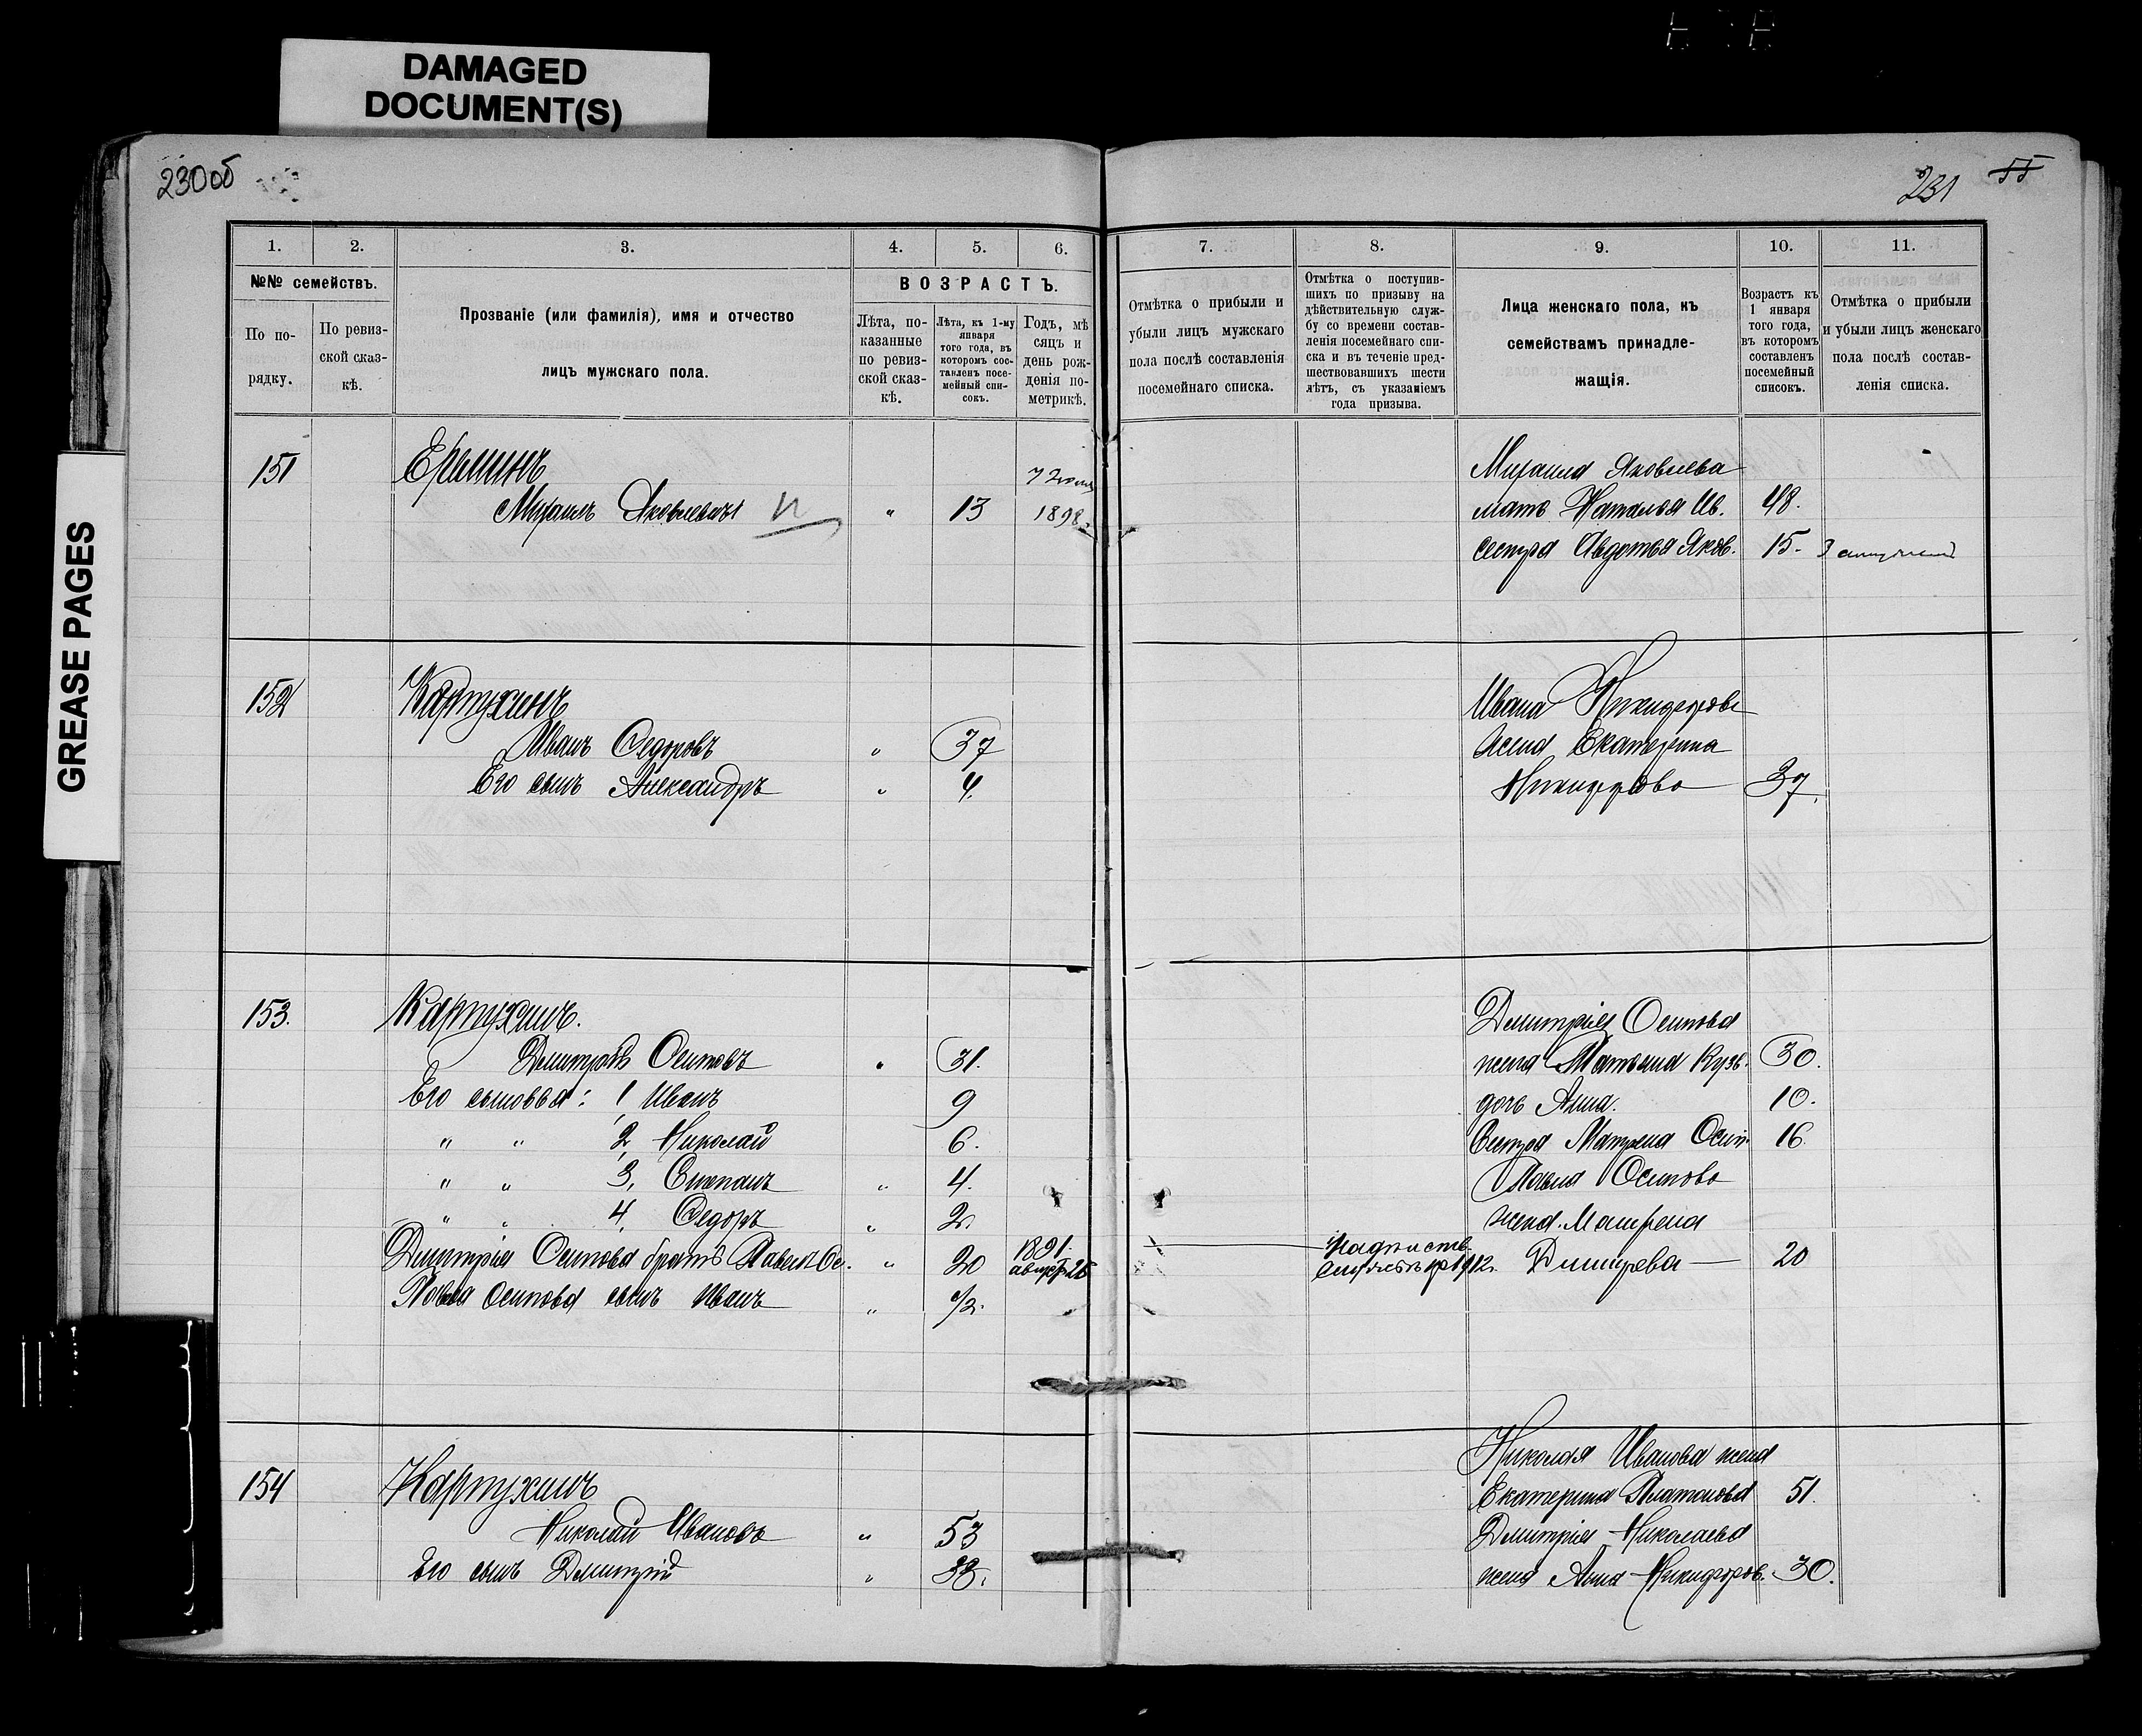 DAMAGED
DOCUMENT(S)
GREASE PAGES
230 об
231 55
1. 2. 3. 4. 5. 6. 7. 8. 9. 10. 11.
№№ семействъ.
По по-
рядку.
По ревиз-
ской сказ-
кѣ.
Прозваніе (или фамилія), имя и отчество
лицъ мужскаго пола.
ВОЗРАСТЪ.
Лѣта, по-
казанные
по ревиз-
ской сказ-
кѣ.
Лѣта, къ 1-му
января
того года, въ
которомъ сос-
тавленъ посе-
мейный спи-
сокъ.
Годъ, мѣ
сяцъ и
день рож-
денія по-
метрикѣ.
Отмѣтка о прибыли и
убыли лицъ мужскаго
пола послѣ составленія
посемейнаго списка.
Отмѣтка о поступив-
шихъ по призыву на
дѣйствительную служ-
бу со времени состав-
ленія посемейнаго спи-
ска и въ теченіе пред-
шествовавшихъ шести
лѣтъ, съ указаніемъ
года призыва.
Лица женскаго пола, къ
семействамъ принадле-
жащія.
Возрастъ къ
1 января
того года,
въ которомъ
составленъ
посемейный
списокъ.
Отмѣтка о прибыли
и убыли лицъ женскаго
пола послѣ состав-
ленія списка.
151 Ереминъ 7 Михаила Яковлева
Михаилъ Яковлевичъ " 13 1898. мать Наталья Ив. 48.
сестра Авдотья Яков. 15.
152 Картухинъ Ивана
Иванъ Федоровъ " 37 жена Екатерина
Его сынъ Александръ " 4. 37.
153. Картухинъ. Дмитрія Осипова
Дмитрій Осиповъ " 31. жена Татьяна Кузь. 30.
Его сыновья: 1 Иванъ 9 дочь Анна. 10.
" " 2, Николай 6. Сестра Матрена Осип. 16.
" " 3, Степанъ " 4. Павла Осипова
" " 4, Федоръ " 2. жена Матрена
Дмитрія Осипова братъ Павелъ Ос. " 20 1891. 1912г. 20
Павла Осипова сынъ Иванъ " 1/2.
154 Картухинъ Николая Иванова жена
Екатерина Платонова 51.
Николай Ивановъ " 53 Дмитрія Николаева
Его сынъ Дмитрій " 33. жена Анна Никифоров. 30.